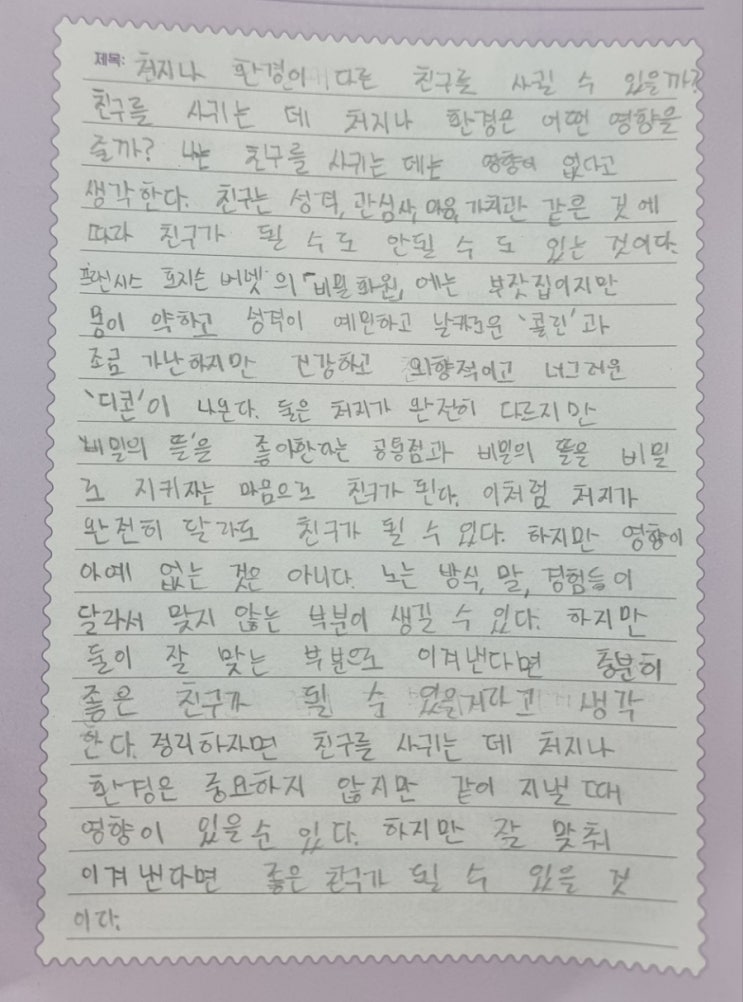 제목: 처지나 환경이 다른 친구를 사귈 수 있을까?
친구를 사귀는 데 처지나 환경은 어떤 영향을
줄까? 나는 친구를 사귀는 데는 영향이 없다고
생각한다. 친구는 성격, 관심사, 마음, 가치관 같은 것에
따라 친구가 될 수도 안될 수 도 있는 것이다.
프랜시스 호지슨 버넷의 「비밀화원」에는 부잣집이지만
몸이 약하고 성격이 예민하고 날카로운 '콜린'과
조금 가난하지만 건강하고 외향적이고 너그러운
'디콘'이 나온다. 둘은 처지가 완전히 다르지만
'비밀의 뜰'을 좋아한다는 공통점과 비밀의 뜰을 비밀
로 지키자는 마음으로 친구가 된다. 이처럼 처지가
완전히 달라도 친구가 될 수 있다. 하지만 영향이
아예 없는 것은 아니다. 노는 방식, 말, 경험들이
달라서 맞지 않는 부분이 생길 수 있다. 하지만
둘이 잘 맞는 부분으로 이겨낸다면 충분히
좋은 친구가 될 수 있을거라고 생각
한다. 정리하자면 친구를 사귀는 데 처지나
환경은 중요하지 않지만 같이 지낼 때
영향이 있을순 있다. 하지만 잘 맞춰
이겨낸다면 좋은 친구가 될 수 있을 것
이다.